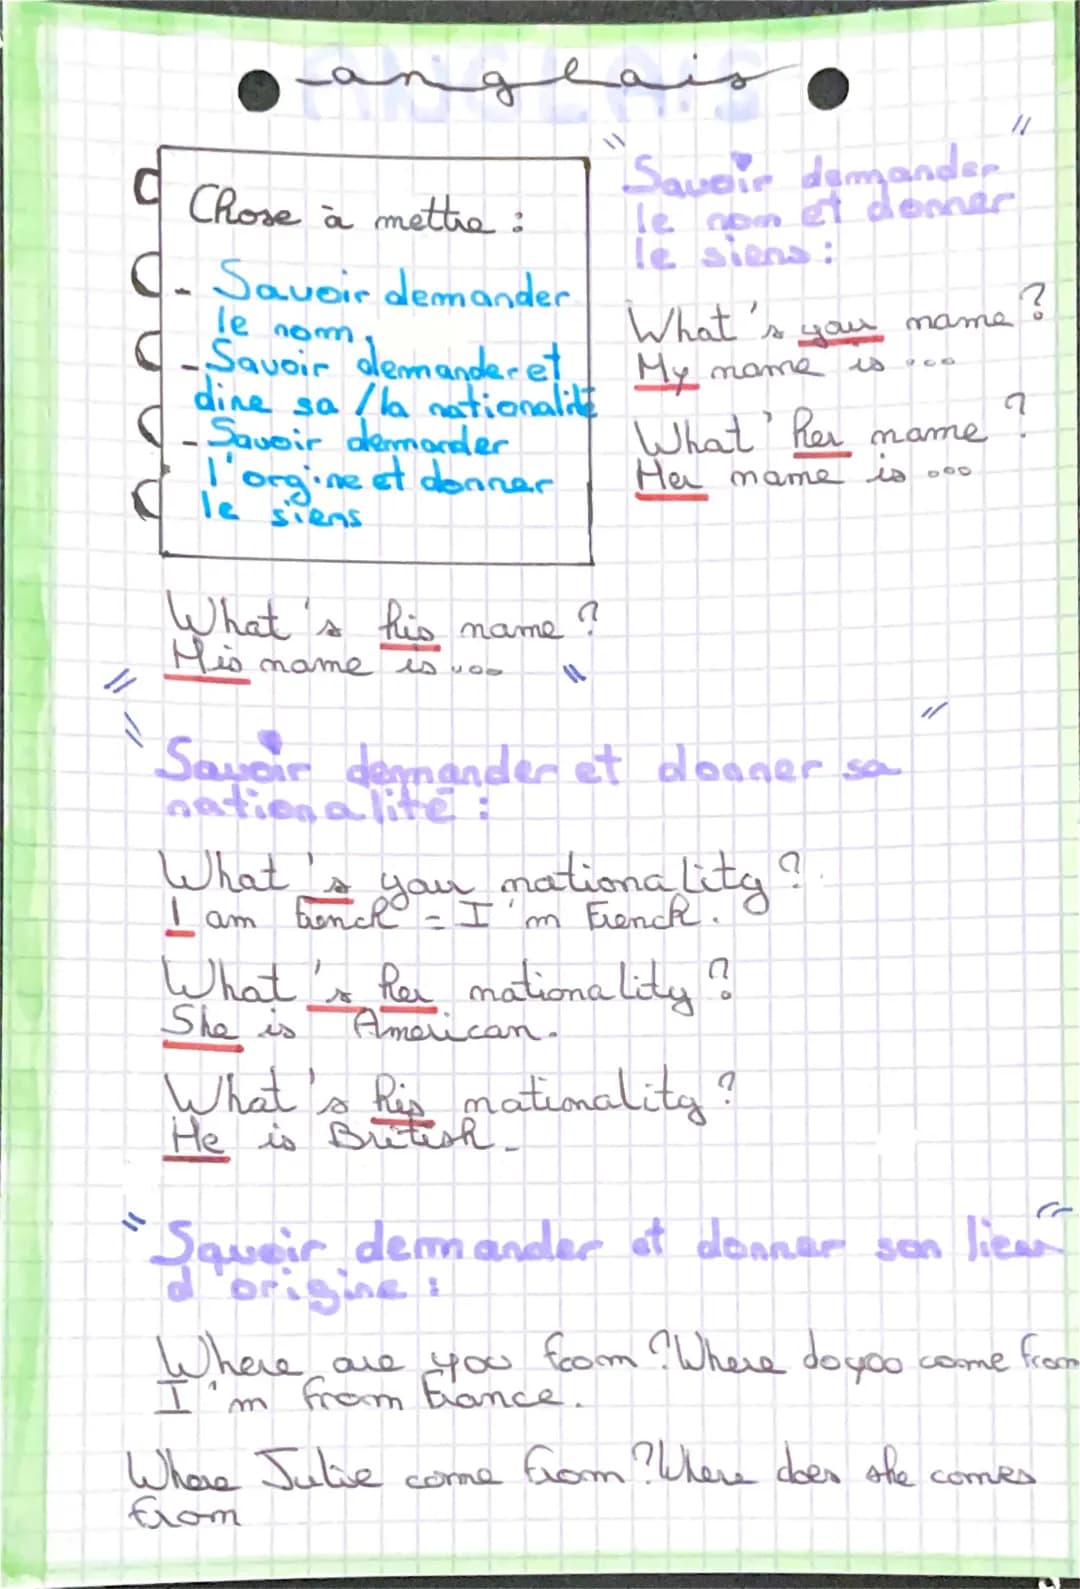 anglais
Chose à mettre :
- Savoir demander
le nom,
- Savoir demander et
dire sa / la nationalité
- Savoir demander
l'orgine et donner
le siens
"Savoir demander
le nom et donner
le siens :
What's your name ?
My name is ...
What' her name ?
Her name is ...
What's his name ?
His name is ...
"Savoir demander et donner sa
nationalité :
What's your nationality ?
I am french = I'm French.
What's her nationality ?
She is American.
What's his nationality ?
He is British.
"Savoir demander et donner son lieu
d'origine :
Where are you from ? Where do you come from
I'm from France.
Where Julie come from ? Where does she comes
from